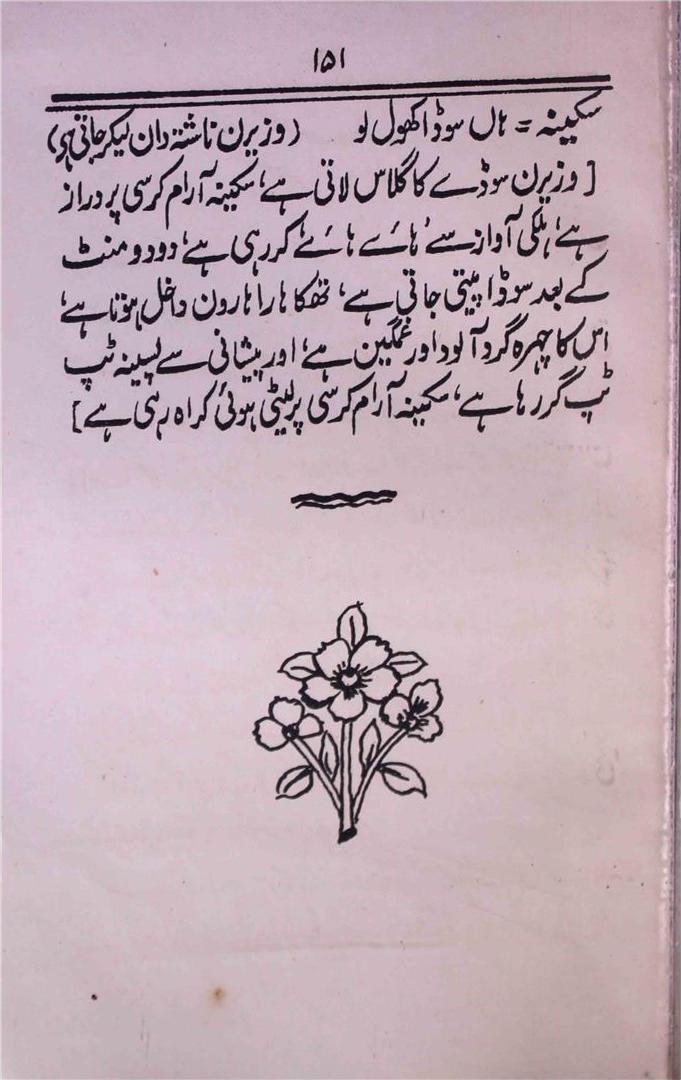 ۱۵۱
سکینہ = ہاں سوڈا کھول لو (وزیرن ناشتہ دان لیکر جاتی ہی)
[وزیرن سوڈے کا گلاس لاتی ہے، سکینہ آرام کرسی پر دراز
ہے، ہلکی آواز سے ہائے ہائے کر رہی ہے، دو دو منٹ
کے بعد سوڈا پیتی جاتی ہے، تھکا ہارا ہارون داخل ہوتا ہے،
اس کا چہرہ گرد آلود اور غمگین ہے، اور پیشانی سے پسینہ ٹپ
ٹپ گر رہا ہے، سکینہ آرام کرسی پر لیٹی ہوئی کراہ رہی ہے]